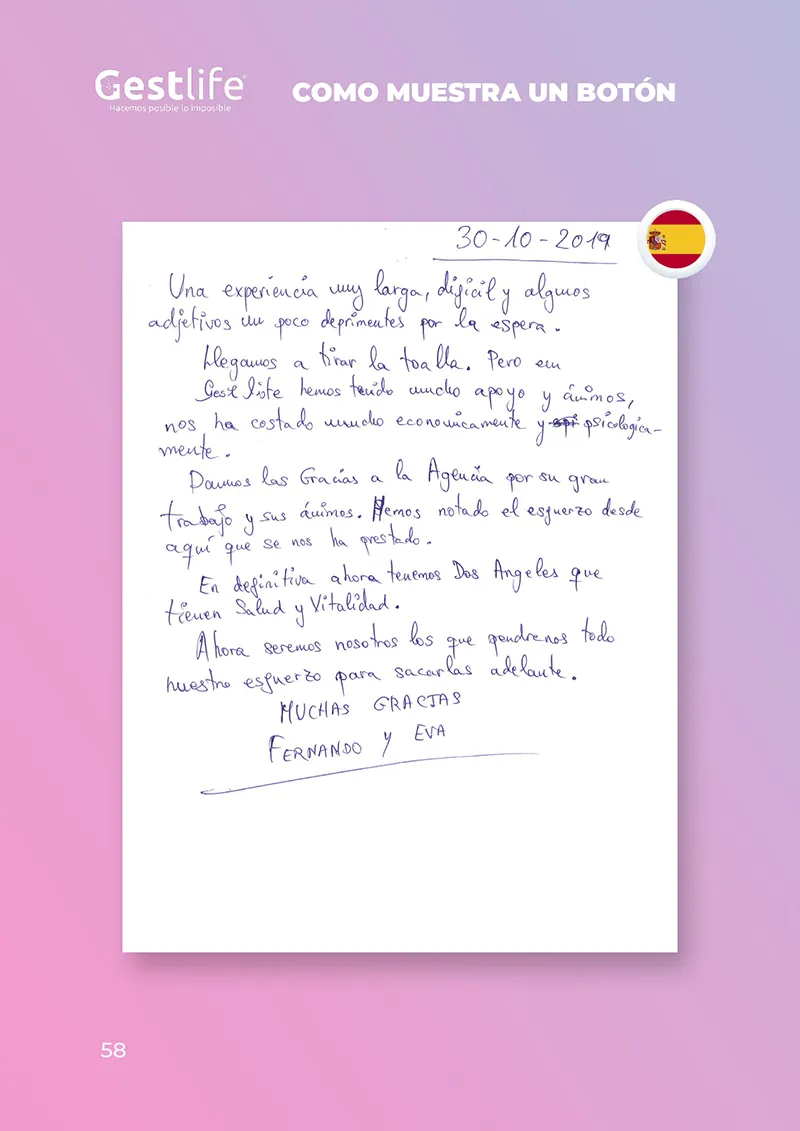 Gestlife
Hacemos posible lo imposible
COMO MUESTRA UN BOTÓN
30-10-2019
Una experiencia muy larga, difícil y algunos
adjetivos un poco deprimentes por la espera.
Llegamos a tirar la toalla. Pero en
Gest liste hemos tenido mucho apoyo y ánimos,
nos ha costado mucho economicamente y psicologica-
mente.
Damos las Gracias a la Agencia por su gran
trabajo y sus ánimos. Hemos notado el esfuerzo desde
aquí que se nos ha prestado.
En definitiva ahora tenemos Dos Angeles que
tienen Salud y Vitalidad.
Ahora seremos nosotros los que pondrenos todo
nuestro esfuerzo para sacarlas adelante.
MUCHAS GRACIAS
FERNANDO y EVA
58